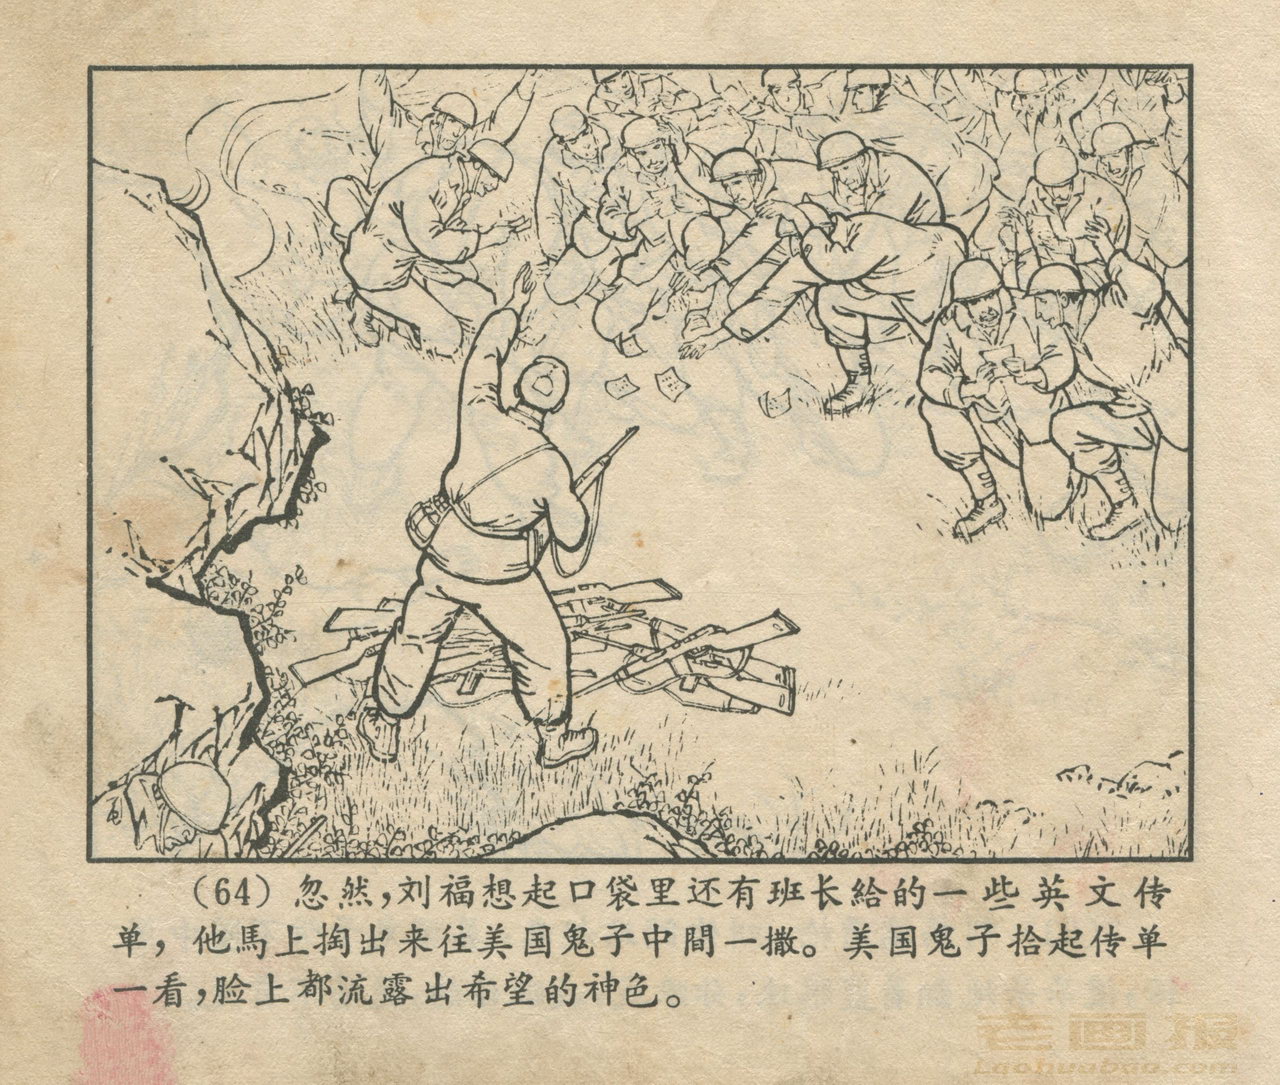 (64) 忽然,刘福想起口袋里还有班长給的一些英文传
单，他馬上掏出来往美国鬼子中間一撒。美国鬼子拾起传单
一看,脸上都流露出希望的神色。
老画报
Laohuabao.com